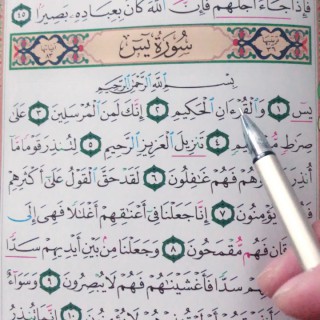 فَإِذَا جَاءَ أَجَلُهُمْ فَإِنَّ ٱللَّهَ كَانَ بِعِبَادِهِۦ بَصِيرًۢا ٤٥
سُورَةُ يسٓ
بِسْمِ ٱللَّهِ ٱلرَّحْمَٰنِ ٱلرَّحِيمِ
يسٓ ١ وَٱلْقُرْءَانِ ٱلْحَكِيمِ ٢ إِنَّكَ لَمِنَ ٱلْمُرْسَلِينَ ٣ عَلَىٰ
صِرَٰطٍ ٤ تَنزِيلَ ٱلْعَزِيزِ ٱلرَّحِيمِ ٥ لِتُنذِرَ قَوْمًا مَّآ
أُنذِرَ فَهُمْ غَٰفِلُونَ ٦ لَقَدْ حَقَّ ٱلْقَوْلُ عَلَىٰٓ أَكْثَرِهِمْ
يُؤْمِنُونَ ٧ إِنَّا جَعَلْنَا فِىٓ أَعْنَٰقِهِمْ أَغْلَٰلًا فَهِىَ إِلَى
فَهُم مُّقْمَحُونَ ٨ وَجَعَلْنَا مِنۢ بَيْنِ أَيْدِيهِمْ سَدًّا
سَدًّا فَأَغْشَيْنَٰهُمْ فَهُمْ لَا يُبْصِرُونَ ٩ وَسَوَآءٌ
لَا يُؤْمِنُونَ ١٠ إِنَّمَا تُنذِرُ